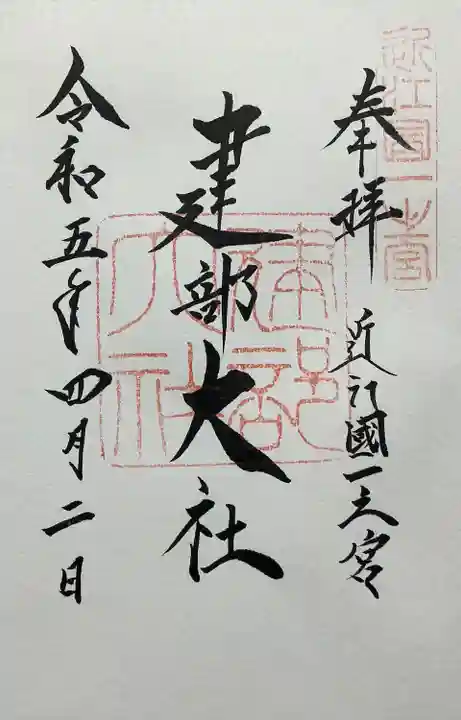 近江国一之宮
奉拝
近江國一之宮
建部大社
建部大社
令和五年四月二日